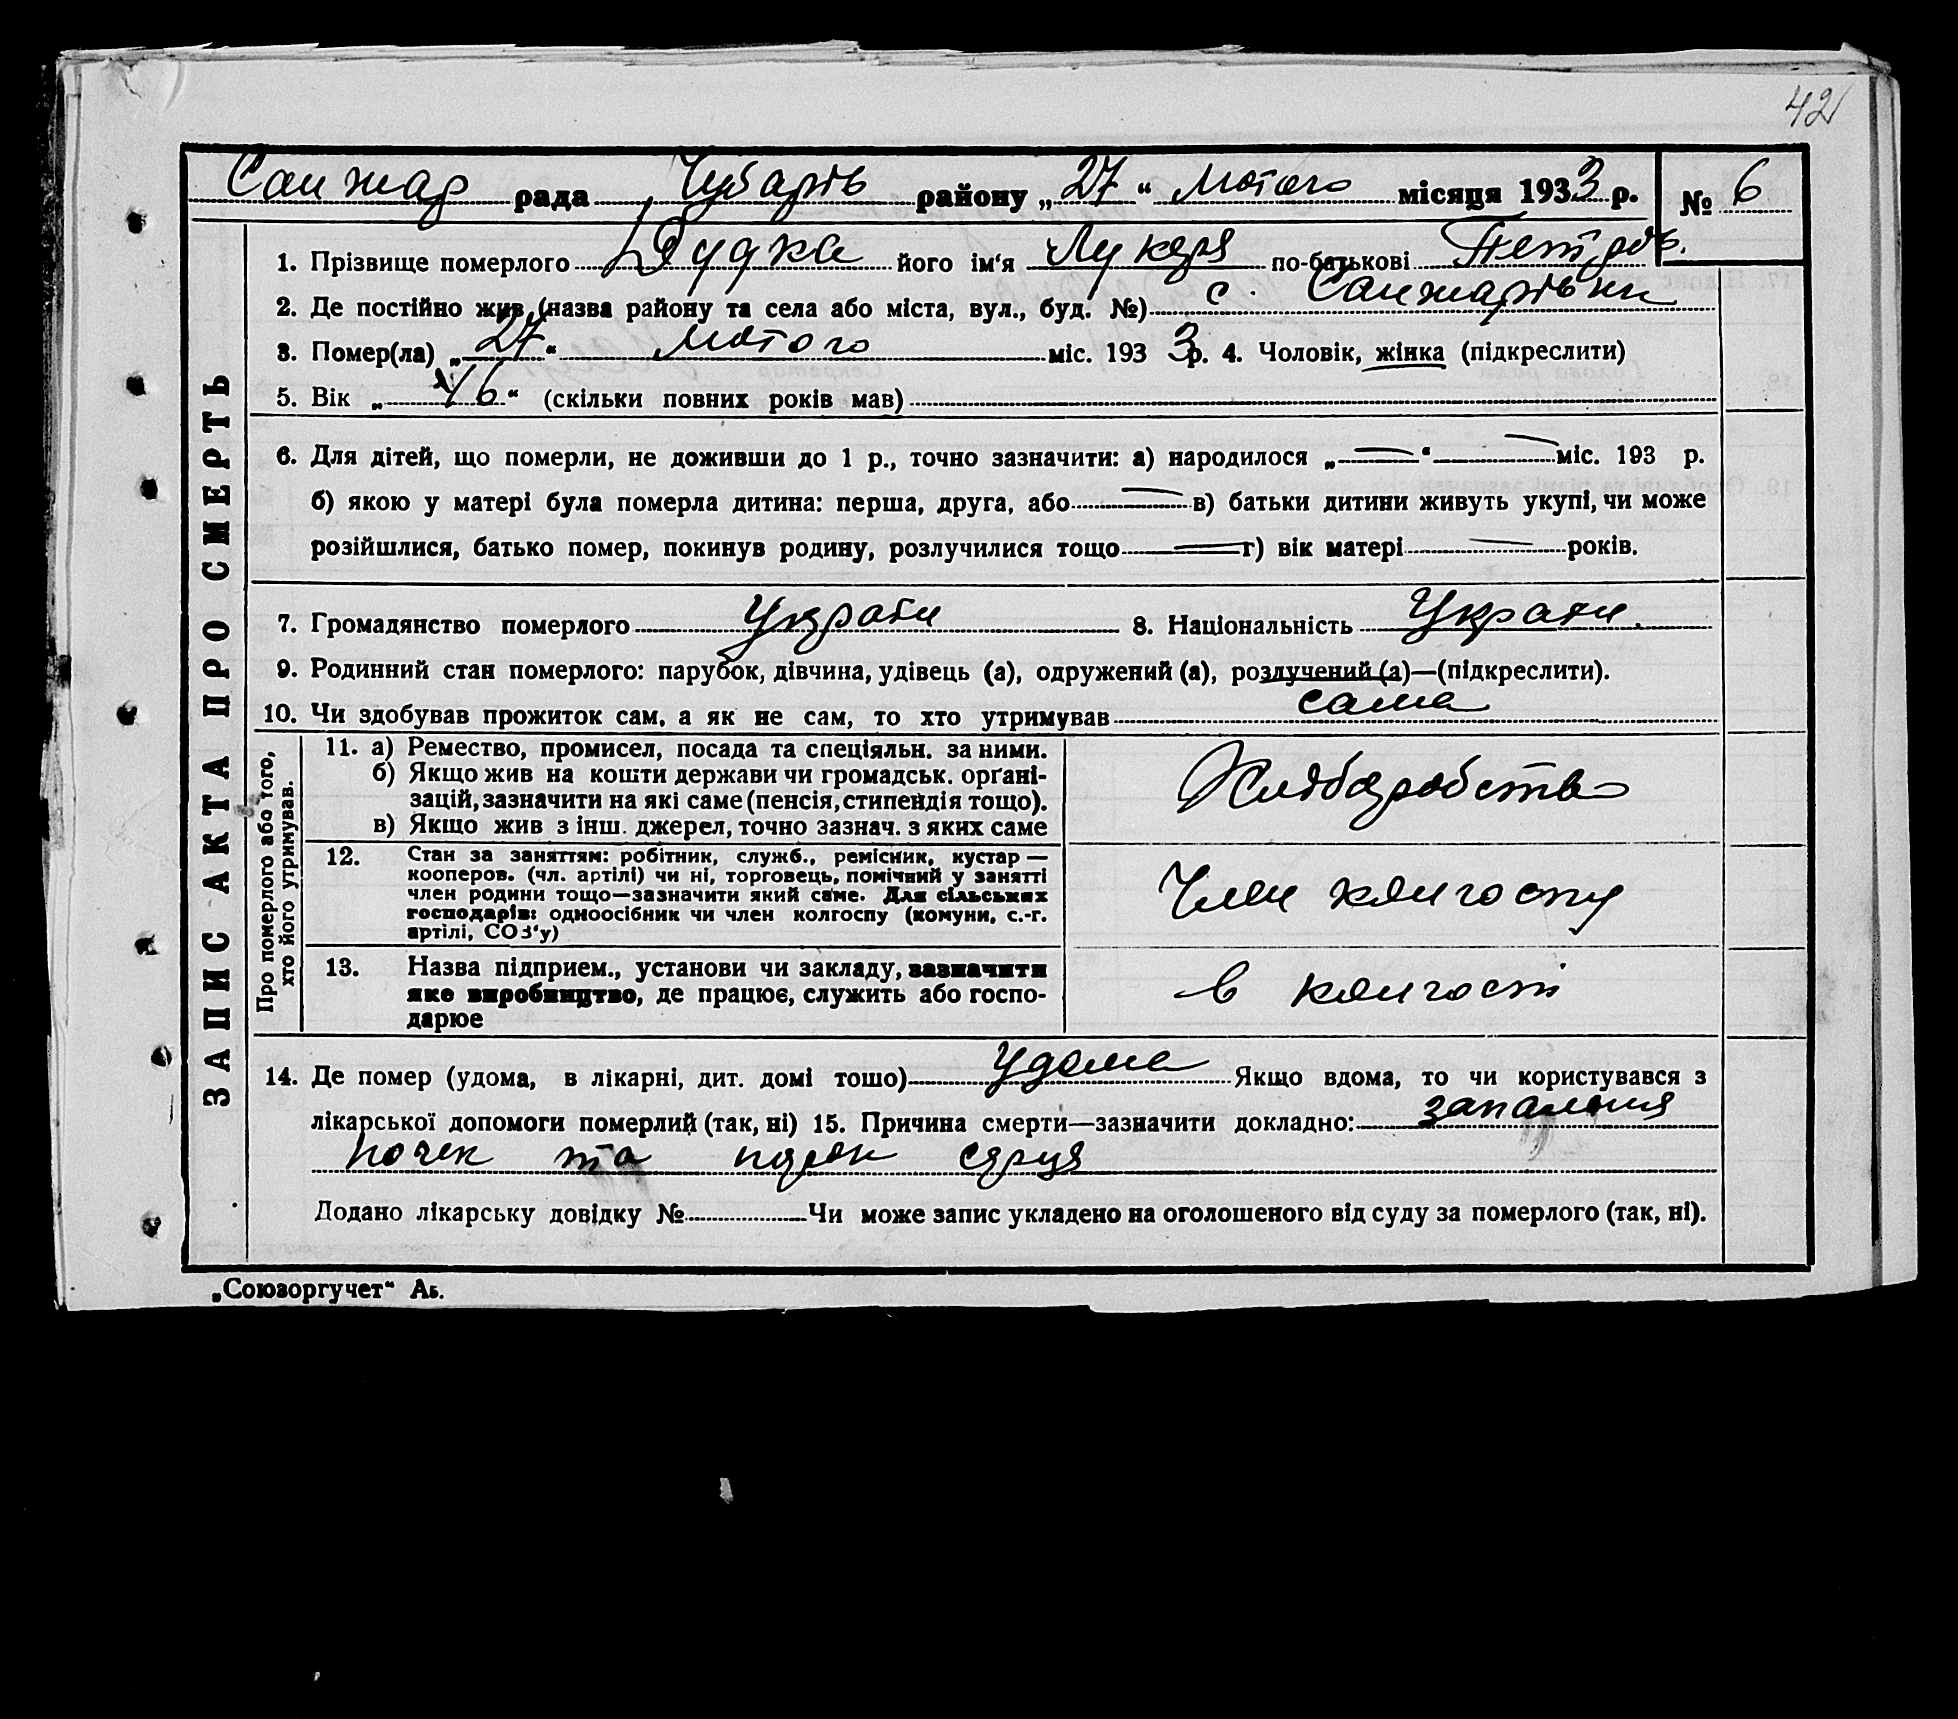 42
Санжар рада Чубарів району „27“ Лютого місяця 1933 р. № 6
1. Прізвище померлого Дудка його ім'я Лукеря по-батькові Петров.
2. Де постійно жив (назва району та села або міста, вул., буд. №) с. Санжарівки
3. Помер(ла) „27“ Лютого міс. 193 3 р. 4. Чоловік, жінка (підкреслити)
5. Вік „46“ (скільки повних років мав)
6. Для дітей, що померли, не доживши до 1 р., точно зазначити: а) народилося „—“ — міс. 193 р.
б) якою у матері була померла дитина: перша, друга, або — в) батьки дитини живуть укупі, чи може
розійшлися, батько помер, покинув родину, розлучилися тощо — г) вік матері — років.
7. Громадянство померлого Украін 8. Національність Украін.
9. Родинний стан померлого: парубок, дівчина, удівець (а), одружений (а), розлучений (а)—(підкреслити).
10. Чи здобував прожиток сам, а як не сам, то хто утримував сама
ЗАПИС АКТА ПРО СМЕРТЬ
Про померлого або того,
хто його утримував.
11. а) Ремество, промисел, посада та спеціяльн. за ними.
б) Якщо жив на кошти держави чи громадськ. орґані-
зацій, зазначити на які саме (пенсія, стипендія тощо).
в) Якщо жив з інш. джерел, точно зазнач. з яких саме
Хліборобство
12. Стан за заняттям: робітник, служб., ремісник, кустар —
кооперов. (чл. артілі) чи ні, торговець, помічний у занятті
член родини тощо—зазначити який саме. Для сільських
господарів: одноосібник чи член колгоспу (комуни, с.-г.
артілі, СОЗ'у)
Член колгоспу
13. Назва підприєм., установи чи закладу, зазначити
яке виробництво, де працює, служить або госпо-
дарює
в колгості
14. Де помер (удома, в лікарні, дит. домі тошо) Удома Якщо вдома, то чи користувався з
лікарської допомоги померлий (так, ні) 15. Причина смерти—зазначити докладно: запалення
почек та серця
Додано лікарську довідку № Чи може запис укладено на оголошеного від суду за померлого (так, ні).
„Союзоргучет“ Аб.